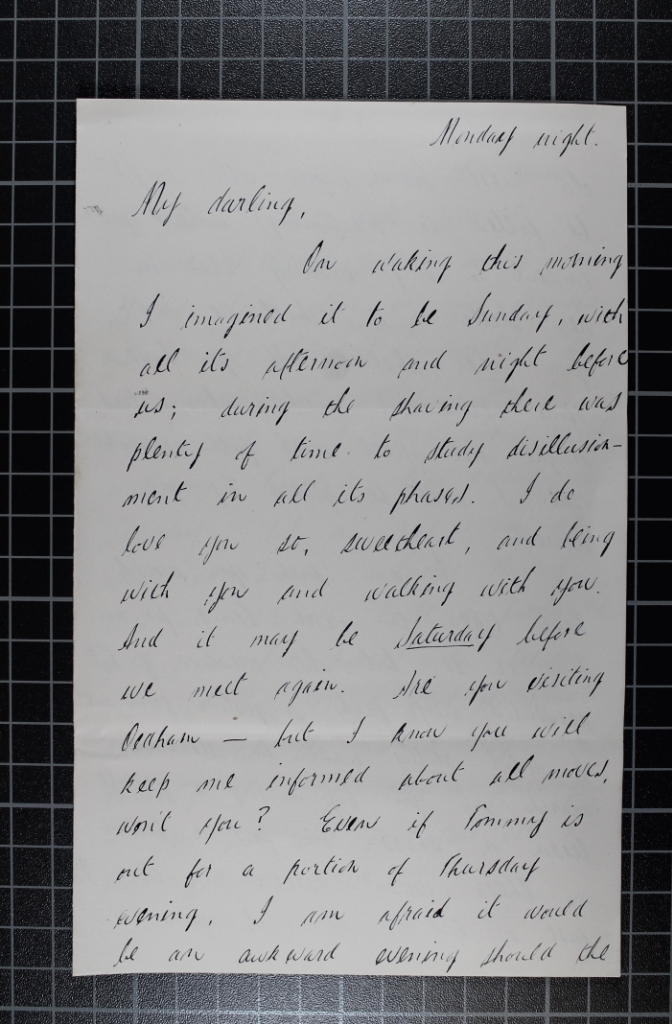 Monday night.
My darling,
On waking this morning
I imagined it to be Sunday, with
all its afternoon and night before
us; during the shaving there was
plenty of time to study disillusion-
ment in all its phases. I do
love you so, sweetheart, and being
with you and walking with you.
And it may be Saturday before
we meet again. Are you visiting
— but I know you will
keep me informed about all moves,
won't you? Even if Tommy is
out for a portion of Thursday
evening, I am afraid it would
be an awkward evening should the